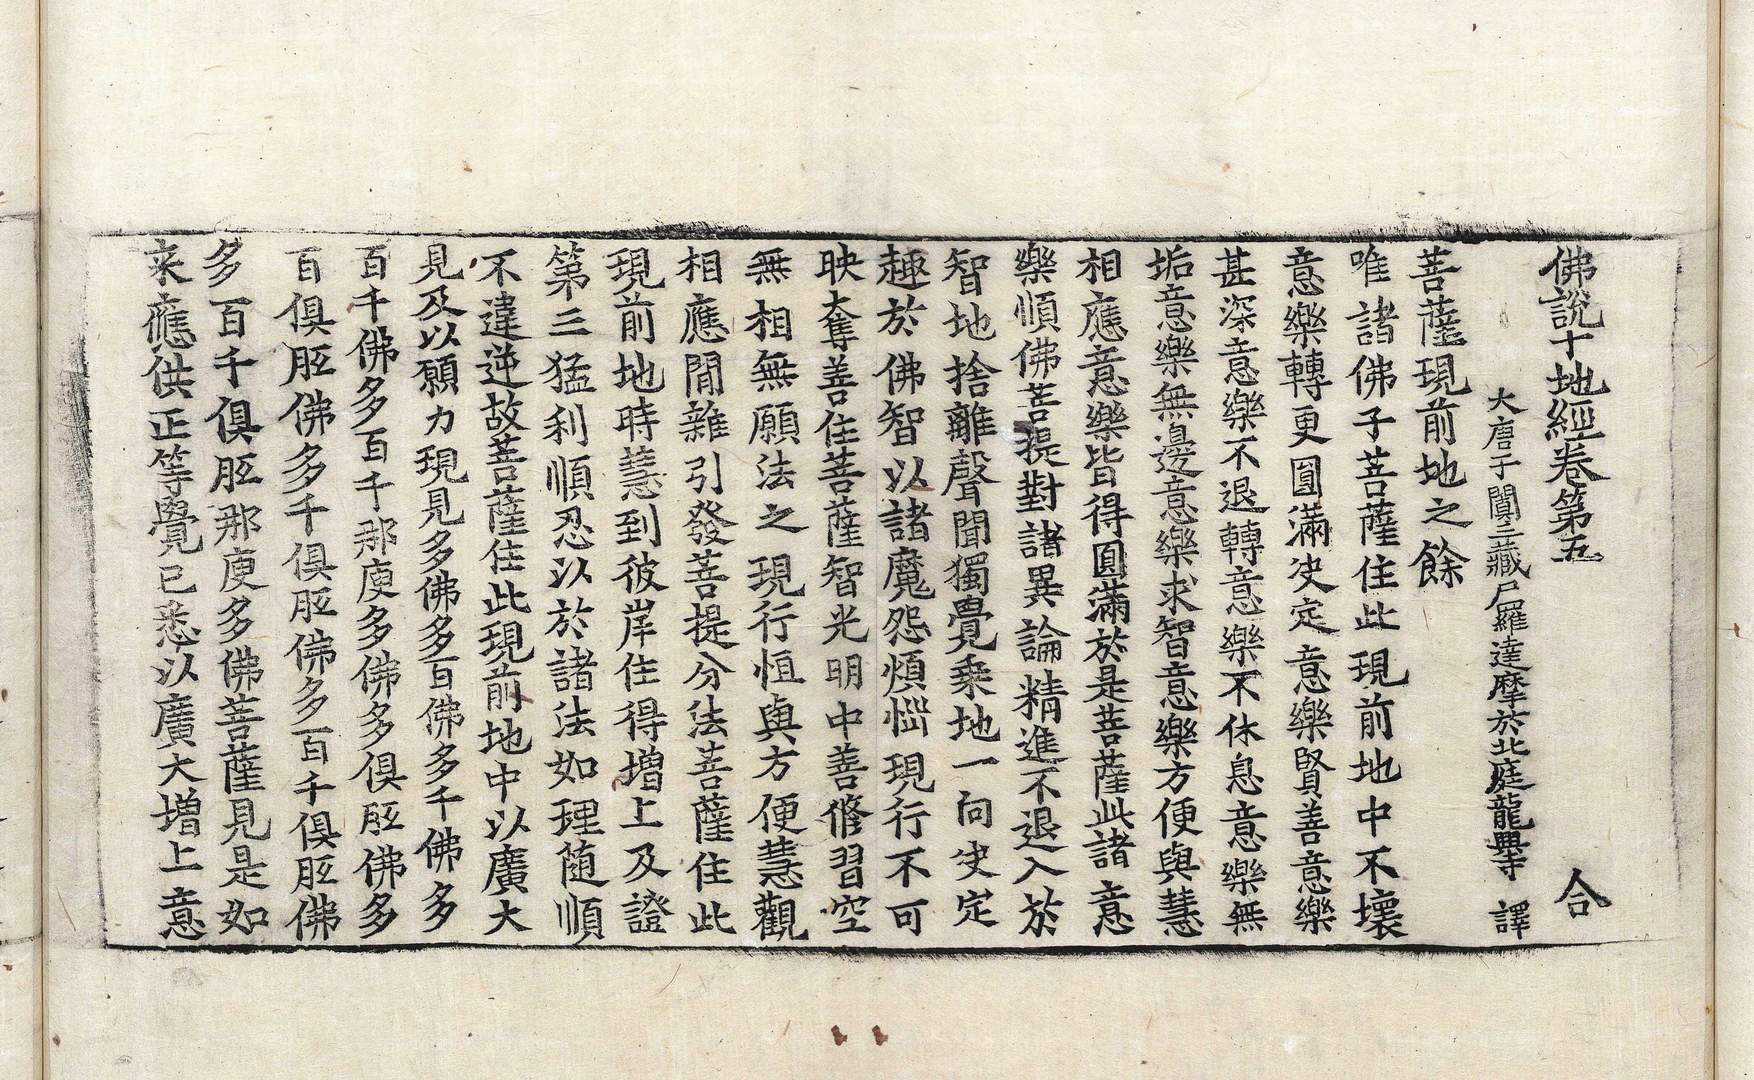 佛說十地經卷第五　合
大唐于闐三藏尸羅達摩於北庭龍興寺　譯
菩薩現前地之餘
唯諸佛子菩薩住此現前地中不壞
意樂轉更圓滿決定意樂賢善意樂
甚深意樂不退轉意樂不休息意樂無
垢意樂無邊意樂求智意樂方便與慧
相應意樂皆得圓滿於是菩薩此諸意
樂順佛菩提對諸異論精進不退入於
智地捨離聲聞獨覺乘地一向決定
趣於佛智以諸魔怨煩惱現行不可
映奪善住菩薩智光明中善修習空
無相無願法之現行恒與方便慧觀
相應閒雜引發菩提分法菩薩住此
現前地時慧到彼岸住得增上及證
第三猛利順忍以於諸法如理隨順
不違逆故菩薩住此現前地中以廣大
見及以願力現見多佛多百佛多千佛多
百千佛多百千那庾多佛多俱胝佛多
百俱胝佛多千俱胝佛多百千俱胝佛
多百千俱胝那庾多佛菩薩見是如
來應供正等覺已悉以廣大增上意